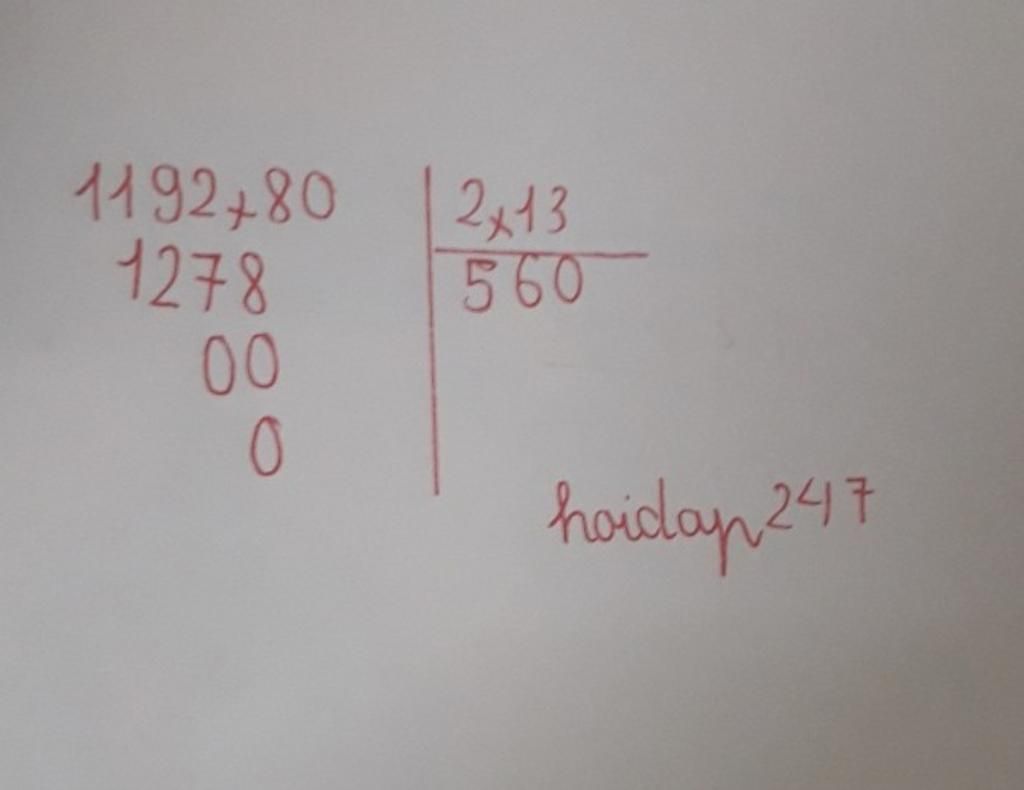 1192,80 2,13
1278 560
00
0
hoidap247